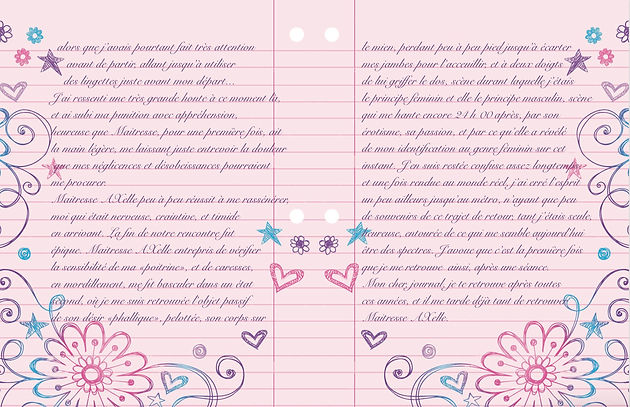 alors que j'avais pourtant fait très attention
avant de partir, allant jusqu'à utiliser
des lingettes juste avant mon départ...
J'ai ressenti une très grande honte à ce moment là,
et ai subi ma punition avec appréhension,
heureuse que Maitresse, pour une première fois, ait
la main légère, me laissant juste entrevoir la douleur
que mes néglicences et désobeissances pourraient
me procurer.
Maitresse AXelle peu à peu réussit à me rassénérer,
moi qui était nerveuse, craintive, et timide
en arrivant. La fin de notre rencontre fut
épique. Maitresse AXelle entrepris de vérifier
la sensibilité de ma «poitrine», et de caresses,
en mordillement, me fit basculer dans un état
second, où je me suis retrouvée l'objet passif
de son désir «phallique», pelottée, son corps sur
le mien, perdant peu à peu pied jusqu'à écarter
mes jambes pour l'acceuillir, et à deux doigts
de lui griffer le dos, scène durant laquelle j'étais
le principe feminin et elle le principe masculin, scène
qui me hante encore 24 h 00 après, par son
érotisme, sa passion, et par ce qu'elle a révélé
de mon identification au genre féminin sur cet
instant. J'en suis restée confuse assez longtemps
et une fois rendue au monde réel, j'ai erré l'esprit
un peu ailleurs jusqu'au métro, n'ayant que peu
de souvenirs de ce trajet de retour, tant j'étais seule,
fleureuse, entourée de ce qui me semble aujourd'hui
être des spectres. J'avoue que c'est la première fois
que je me retrouve ainsi, après une séance.
Mon cher journal, je te retrouve après toutes
ces années, et il me tarde déjà tant de retrouver
Maitresse AXelle.